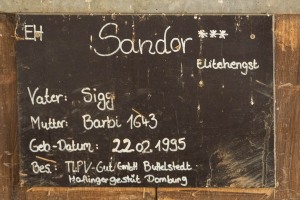 EH
Sandor ***
Elitehengst
Vater: Sigg
Mutter: Barbi 1643
Geb-Datum: 22.02.1995
Bes.: TLPV-Gut GmbH Buttelstedt
Haflingergestüt Domburg